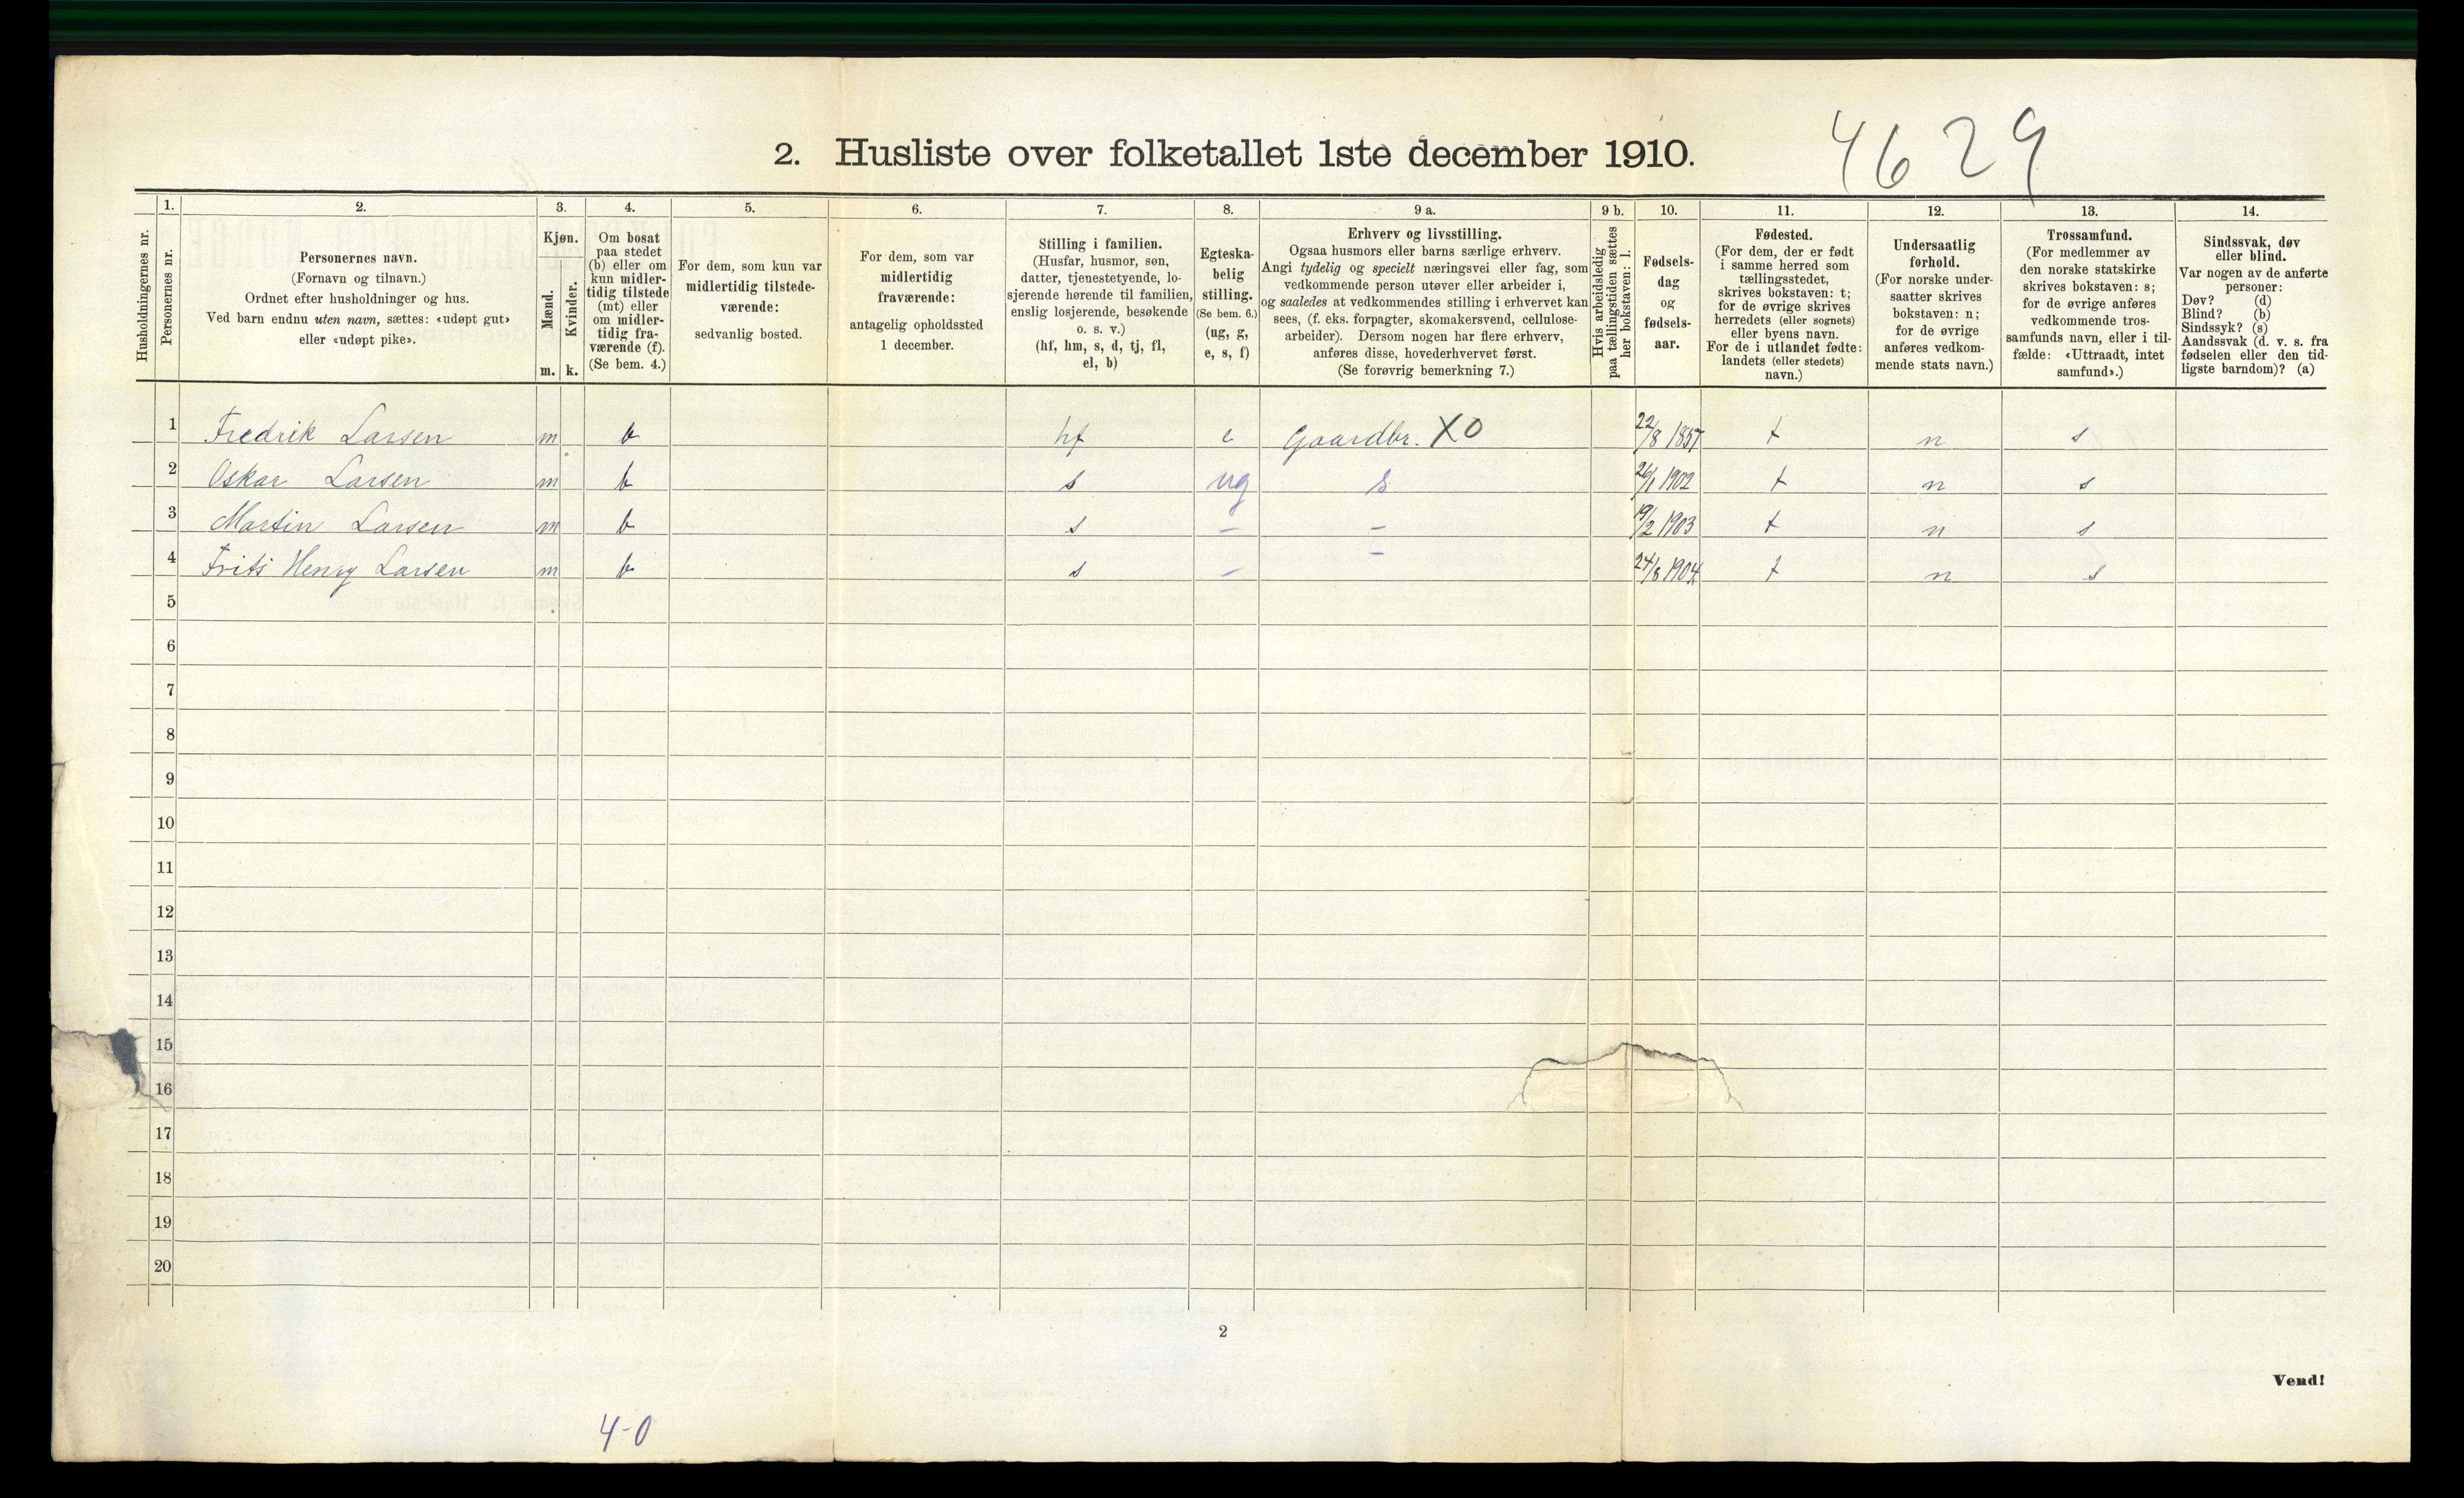 4629
2. Husliste over folketallet 1ste december 1910.
Husholdningernes nr.
1.
Personernes nr.
2.
Personernes navn.
(Fornavn og tilnavn.)
Ordnet efter husholdninger og hus.
Ved barn endnu uten navn, sættes: «udøpt gut»
eller «udøpt pike».
3.
Kjøn.
Mænd.
m.
Kvinder.
k.
4.
Om bosat
paa stedet
(b) eller om
kun midler-
tidig tilstede
(mt) eller
om midler-
tidig fra-
værende (f).
(Se bem. 4.)
5.
For dem, som kun var
midlertidig tilstede-
værende:
sedvanlig bosted.
6.
For dem, som var
midlertidig
fraværende:
antagelig opholdssted
1 december.
7.
Stilling i familien.
(Husfar, husmor, søn,
datter, tjenestetyende, lo-
sjerende hørende til familien,
enslig losjerende, besøkende
o. s. v.)
(hf, hm, s, d, tj, fl,
el, b)
8.
Egteska-
belig
stilling.
(Se bem. 6.)
(ug, g,
e, s, f)
9 a.
Erhverv og livsstilling.
Ogsaa husmors eller barns særlige erhverv.
Angi tydelig og specielt næringsvei eller fag, som
vedkommende person utøver eller arbeider i,
og saaledes at vedkommendes stilling i erhvervet kan
sees, (f. eks. forpagter, skomakersvend, cellulose-
arbeider). Dersom nogen har flere erhverv,
anføres disse, hovederhvervet først.
(Se forøvrig bemerkning 7.)
9 b.
Hvis arbeidsledig
paa tællingstiden sættes
her bokstaven: l.
10.
Fødsels-
dag
og
fødsels-
aar.
11.
Fødested.
(For dem, der er født
i samme herred som
tællingsstedet,
skrives bokstaven: t;
for de øvrige skrives
herredets (eller sognets)
eller byens navn.
For de i utlandet fødte:
landets (eller stedets)
navn.)
12.
Undersaatlig
forhold.
(For norske under-
saatter skrives
bokstaven: n;
for de øvrige
anføres vedkom-
mende stats navn.)
13.
Trossamfund.
(For medlemmer av
den norske statskirke
skrives bokstaven: s;
for de øvrige anføres
vedkommende tros-
samfunds navn, eller i til-
fælde: «Uttraadt, intet
samfund».)
14.
Sindssvak, døv
eller blind.
Var nogen av de anførte
personer:
Døv? (d)
Blind? (b)
Sindssyk? (s)
Aandssvak (d. v. s. fra
fødselen eller den tid-
ligste barndom)? (a)
1 Fredrik Larsen m b hf e Gaardbr. XO 22/8 1857 t n s
2 Oskar Larsen m b s ug s 26/1 1902 t n s
3 Martin Larsen m b s – – 19/2 1903 t n s
4 Frits Henry Larsen m b s – – 24/8 1904 t n s
5
6
7
8
9
10
11
12
13
14
15
16
17
18
19
20
2
Vend!
4-0